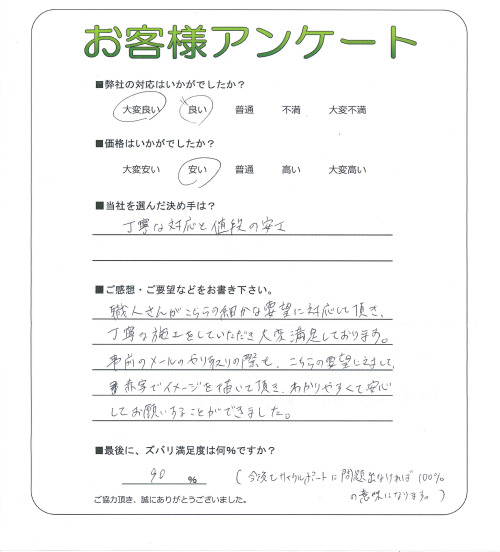 お客様アンケート
■弊社の対応はいかがでしたか?
大変良い 良い 普通 不満 大変不満
■価格はいかがでしたか?
大変安い 安い 普通 高い 大変高い
■当社を選んだ決め手は?
丁寧な対応と値段の安さ
■ご感想・ご要望などをお書き下さい。
職人さんがこちらの細かな要望に対応して頂き、
丁寧な施工をしていただき大変満足しております。
事前のメールのやり取りの際も、こちらの要望に対して、
赤字でイメージを描いて頂き、わかりやすくて安心
してお願いすることができました。
■最後に、ズバリ満足度は何%ですか?
90 % (今後サイクルポートに問題出なければ100%
の意味になります。)
ご協力頂き、誠にありがとうございました。